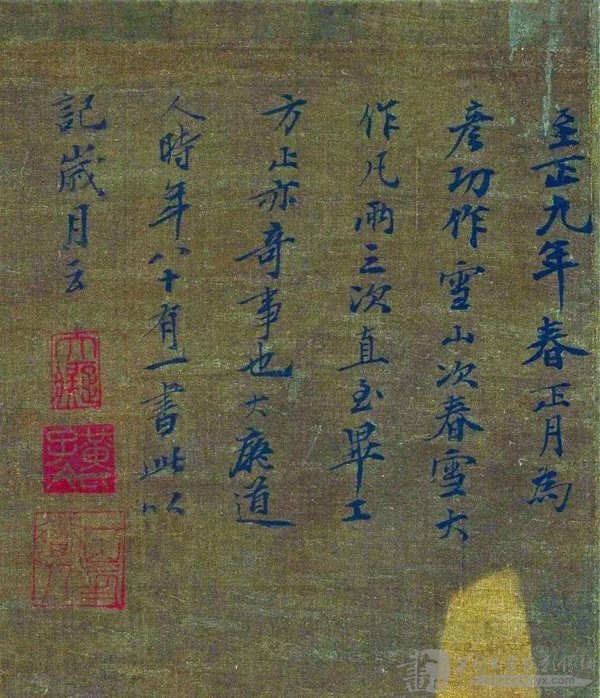 至正九年春正月為
彥功作雪山次春雪大
作凡兩三次直至畢工
方止亦奇事也大癡道
人時年八十有一書此以
記歲月云
大癡